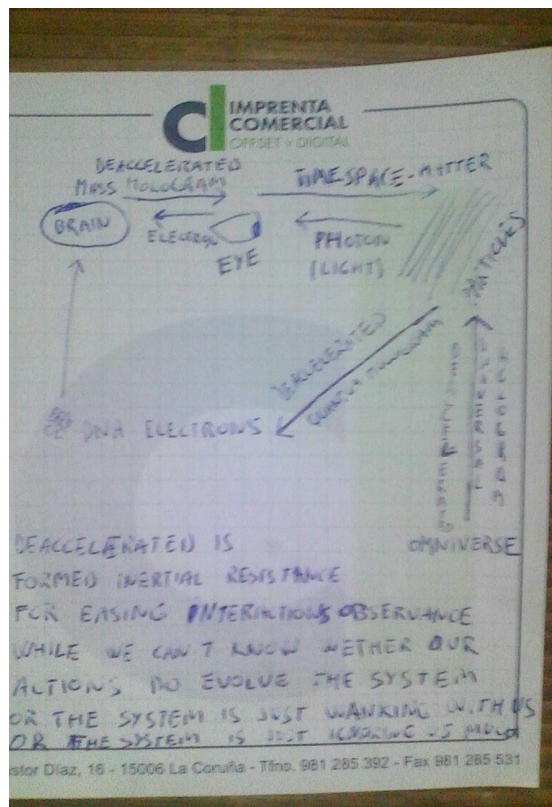 IMPRENTA
COMERCIAL
OFFSET Y DIGITAL
DEACCELERATED
MASS HOLOGRAM
TIMESPACE-MATTER
BRAIN
ELECTRON
EYE
PHOTON
(LIGHT)
PARTICLES
DEACCELERATED
QUANTUM HOLOGRAM
DEACCELERATED
HOLOGRAM
DNA ELECTRONS
OMNIVERSE
DEACCELERATED IS
FORMED INERTIAL RESISTANCE
FOR EASING INTERACTIONS OBSERVANCE
WHILE WE CAN'T KNOW WETHER OUR
ACTIONS DO EVOLVE THE SYSTEM
OR THE SYSTEM IS JUST WANKING WITH US
OR THE SYSTEM IS JUST IGNORING US
stor Díaz, 16 - 15006 La Coruña - Tlfno. 981 285 392 - Fax 981 285 531